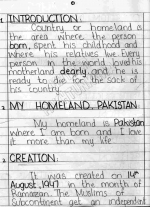 1 INTRODUCTION.
Country or homeland is
the area where the person
born, spent his childhood and
where his relatives live. Every
person in the world loved his
motherland dearly and he is
ready to die for the sack of
his country.
2 MY HOMELAND, PAKISTAN
My homeland is Pakistan
where I am born and I love
it more than my life
2 CREATION.
It was created on 14th
August, 1947 in the month of
Ramazan. The Muslims of
Subcontinent get an independent